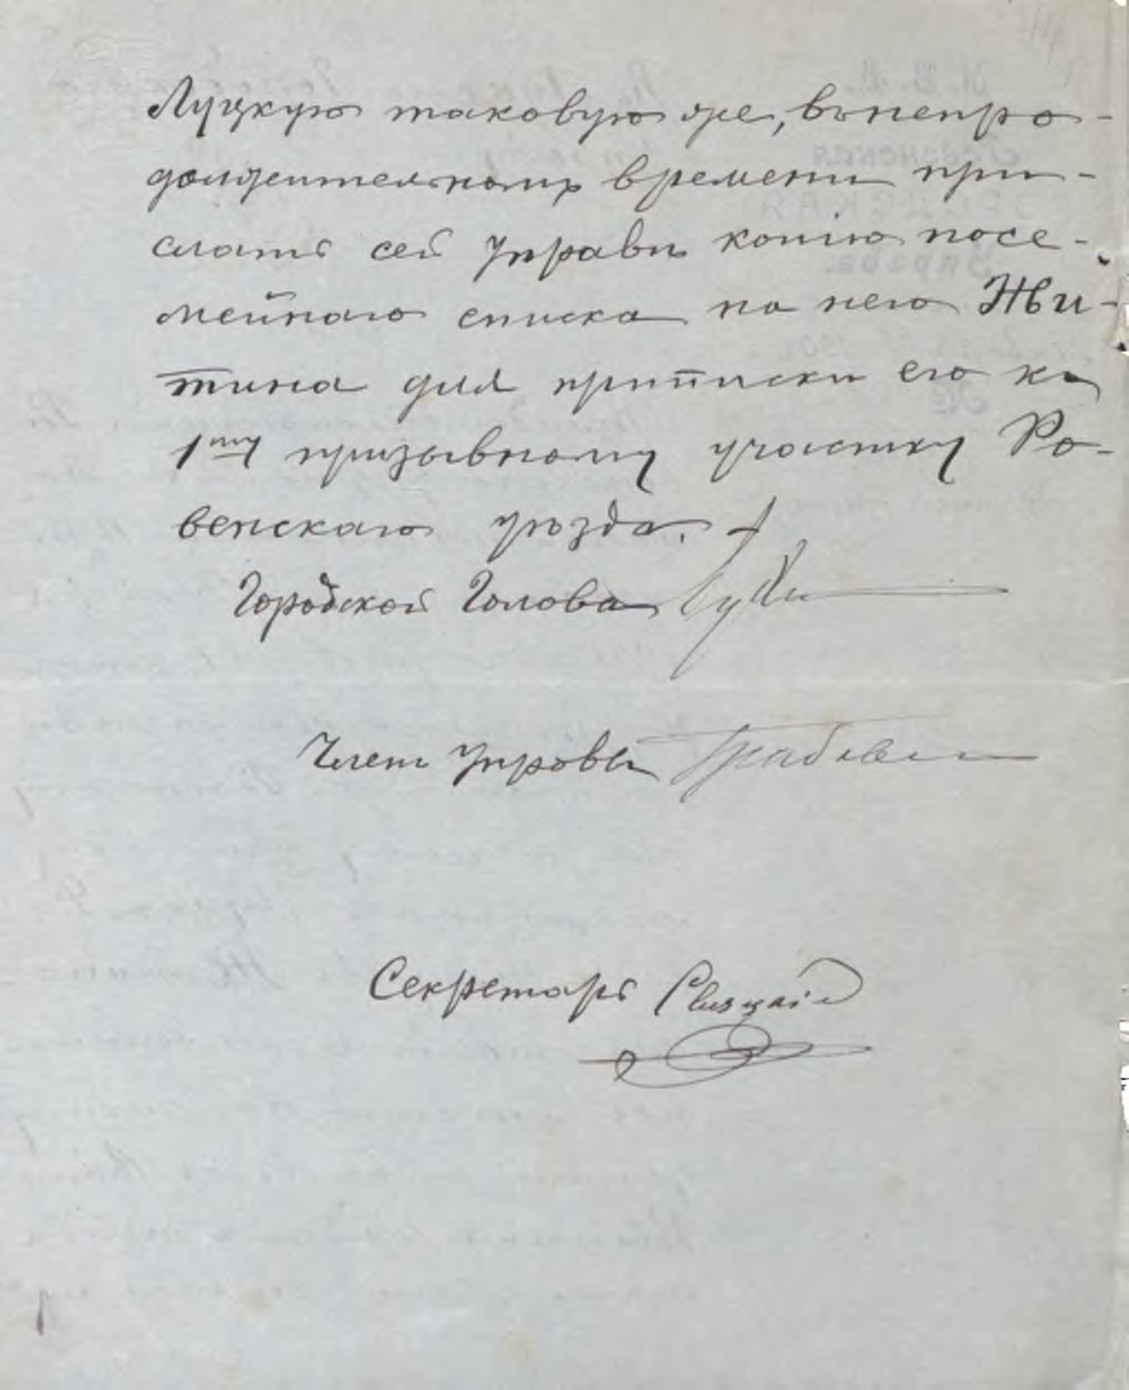 Луцкую таковую же, въ непро-
должительномъ времени при-
слать сей Управѣ копію посе-
мейнаго списка на него Жи-
тина для приписки его къ
1му призывному участку Ро-
венскаго уѣзда.
Городской Голова
Членъ Управы
Секретарь